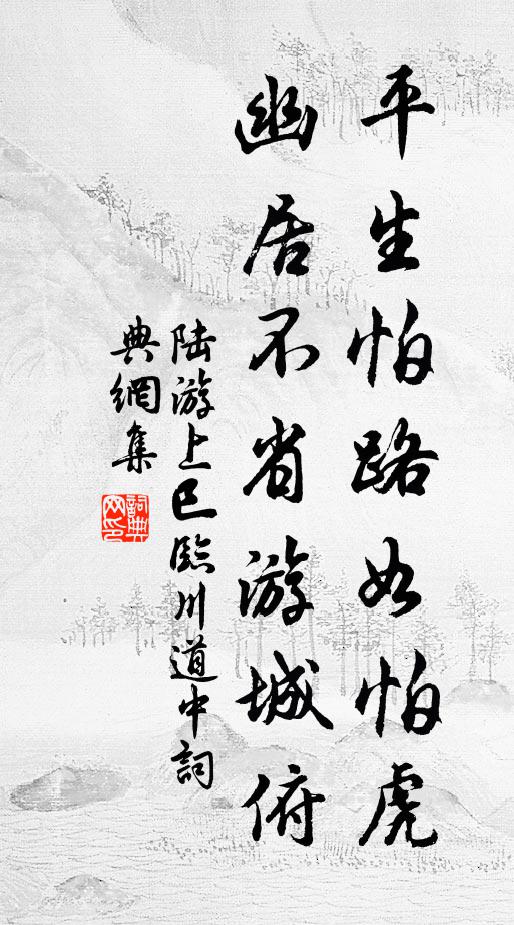 平生怕路如怕虎
幽居不省游城俯
陆游上巳臨川道中詞
典網集
詞典网印